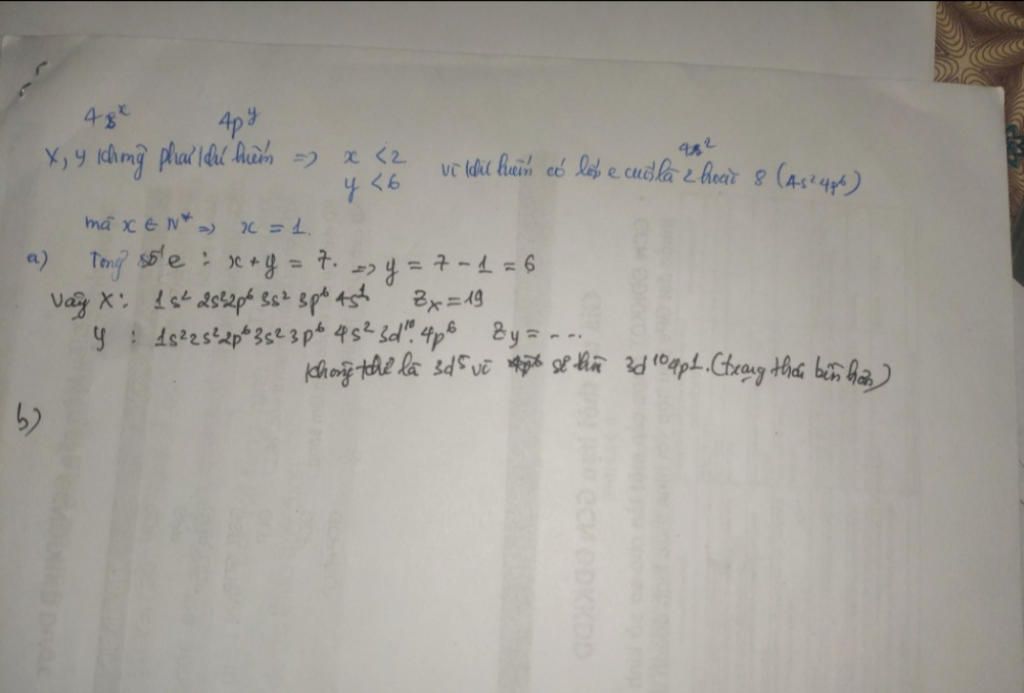 4s^x 4p^y
X, Y không phải khí hiếm => x < 2 vì khí hiếm có lớp e cuối là 2 hoặc 8 (4s² 4p⁶)
4s²
y < 6
mà x ∈ N* => x = 1.
a) Tổng số e : x + y = 7. => y = 7 - 1 = 6
Vậy X: 1s² 2s² 2p⁶ 3s² 3p⁶ 4s¹ Zx = 19
Y : 1s² 2s² 2p⁶ 3s² 3p⁶ 4s² 3d¹⁰. 4p⁶ Zy = ...
không thể là 3d⁵ vì sẽ 3d¹⁰4p1. (trạng thái bền hơn)
b)
GCN GDKKDD